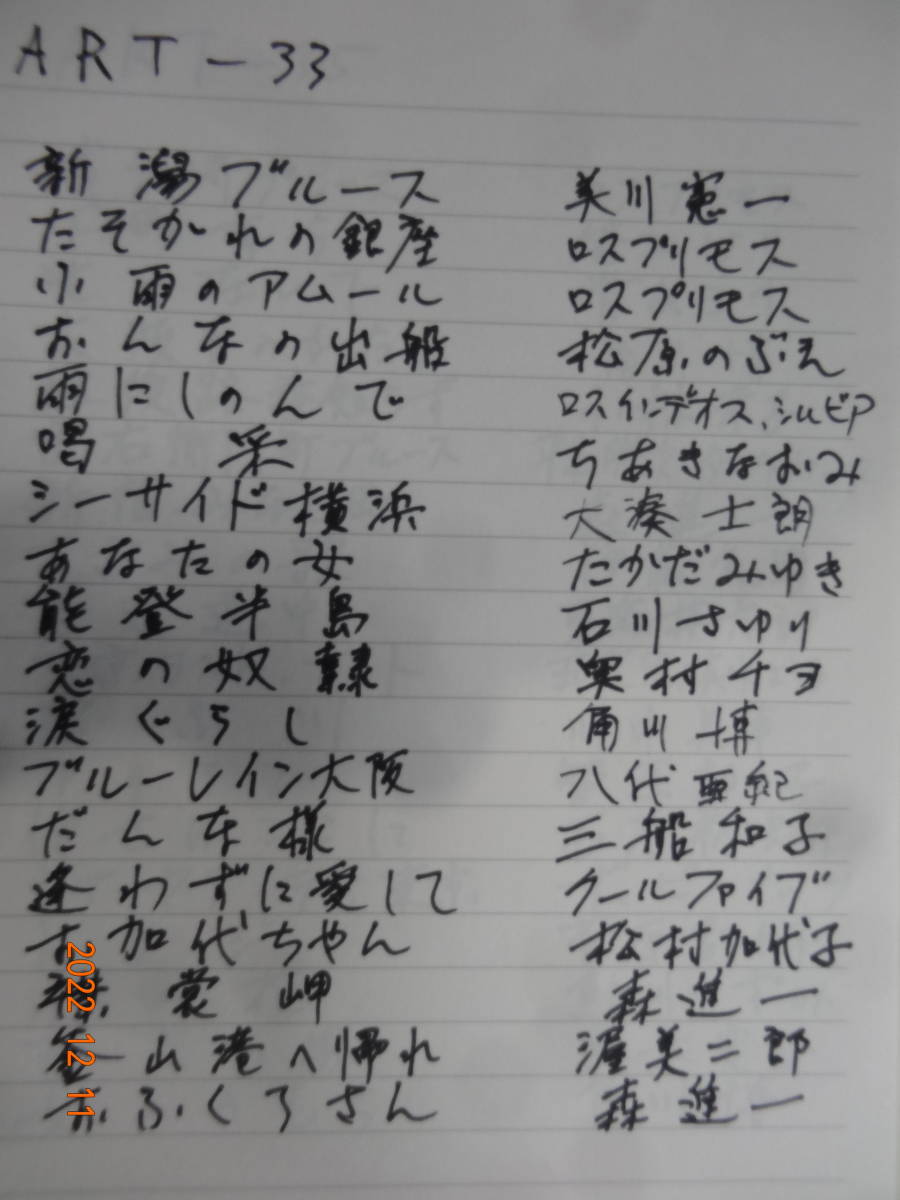 ART-33
新潟ブルース 美川憲一
たそがれの銀座 ロスプリモス
小雨のアムール ロスプリモス
おんなの出船 松原のぶえ
雨にしのんで ロスインデオス、シルビア
喝采 ちあきなおみ
シーサイド横浜 大湊士朗
あなたの女 たかだみゆき
能登半島 石川さゆり
恋の奴隷 奥村チヨ
涙ぐらし 角川博
ブルーレイン大阪 八代亜紀
だんな様 三船和子
逢わずに愛して クールファイブ
お加代ちゃん 松村加代子
襟裳岬 森進一
釜山港へ帰れ 渥美二郎
おふくろさん 森進一
2022 12 11